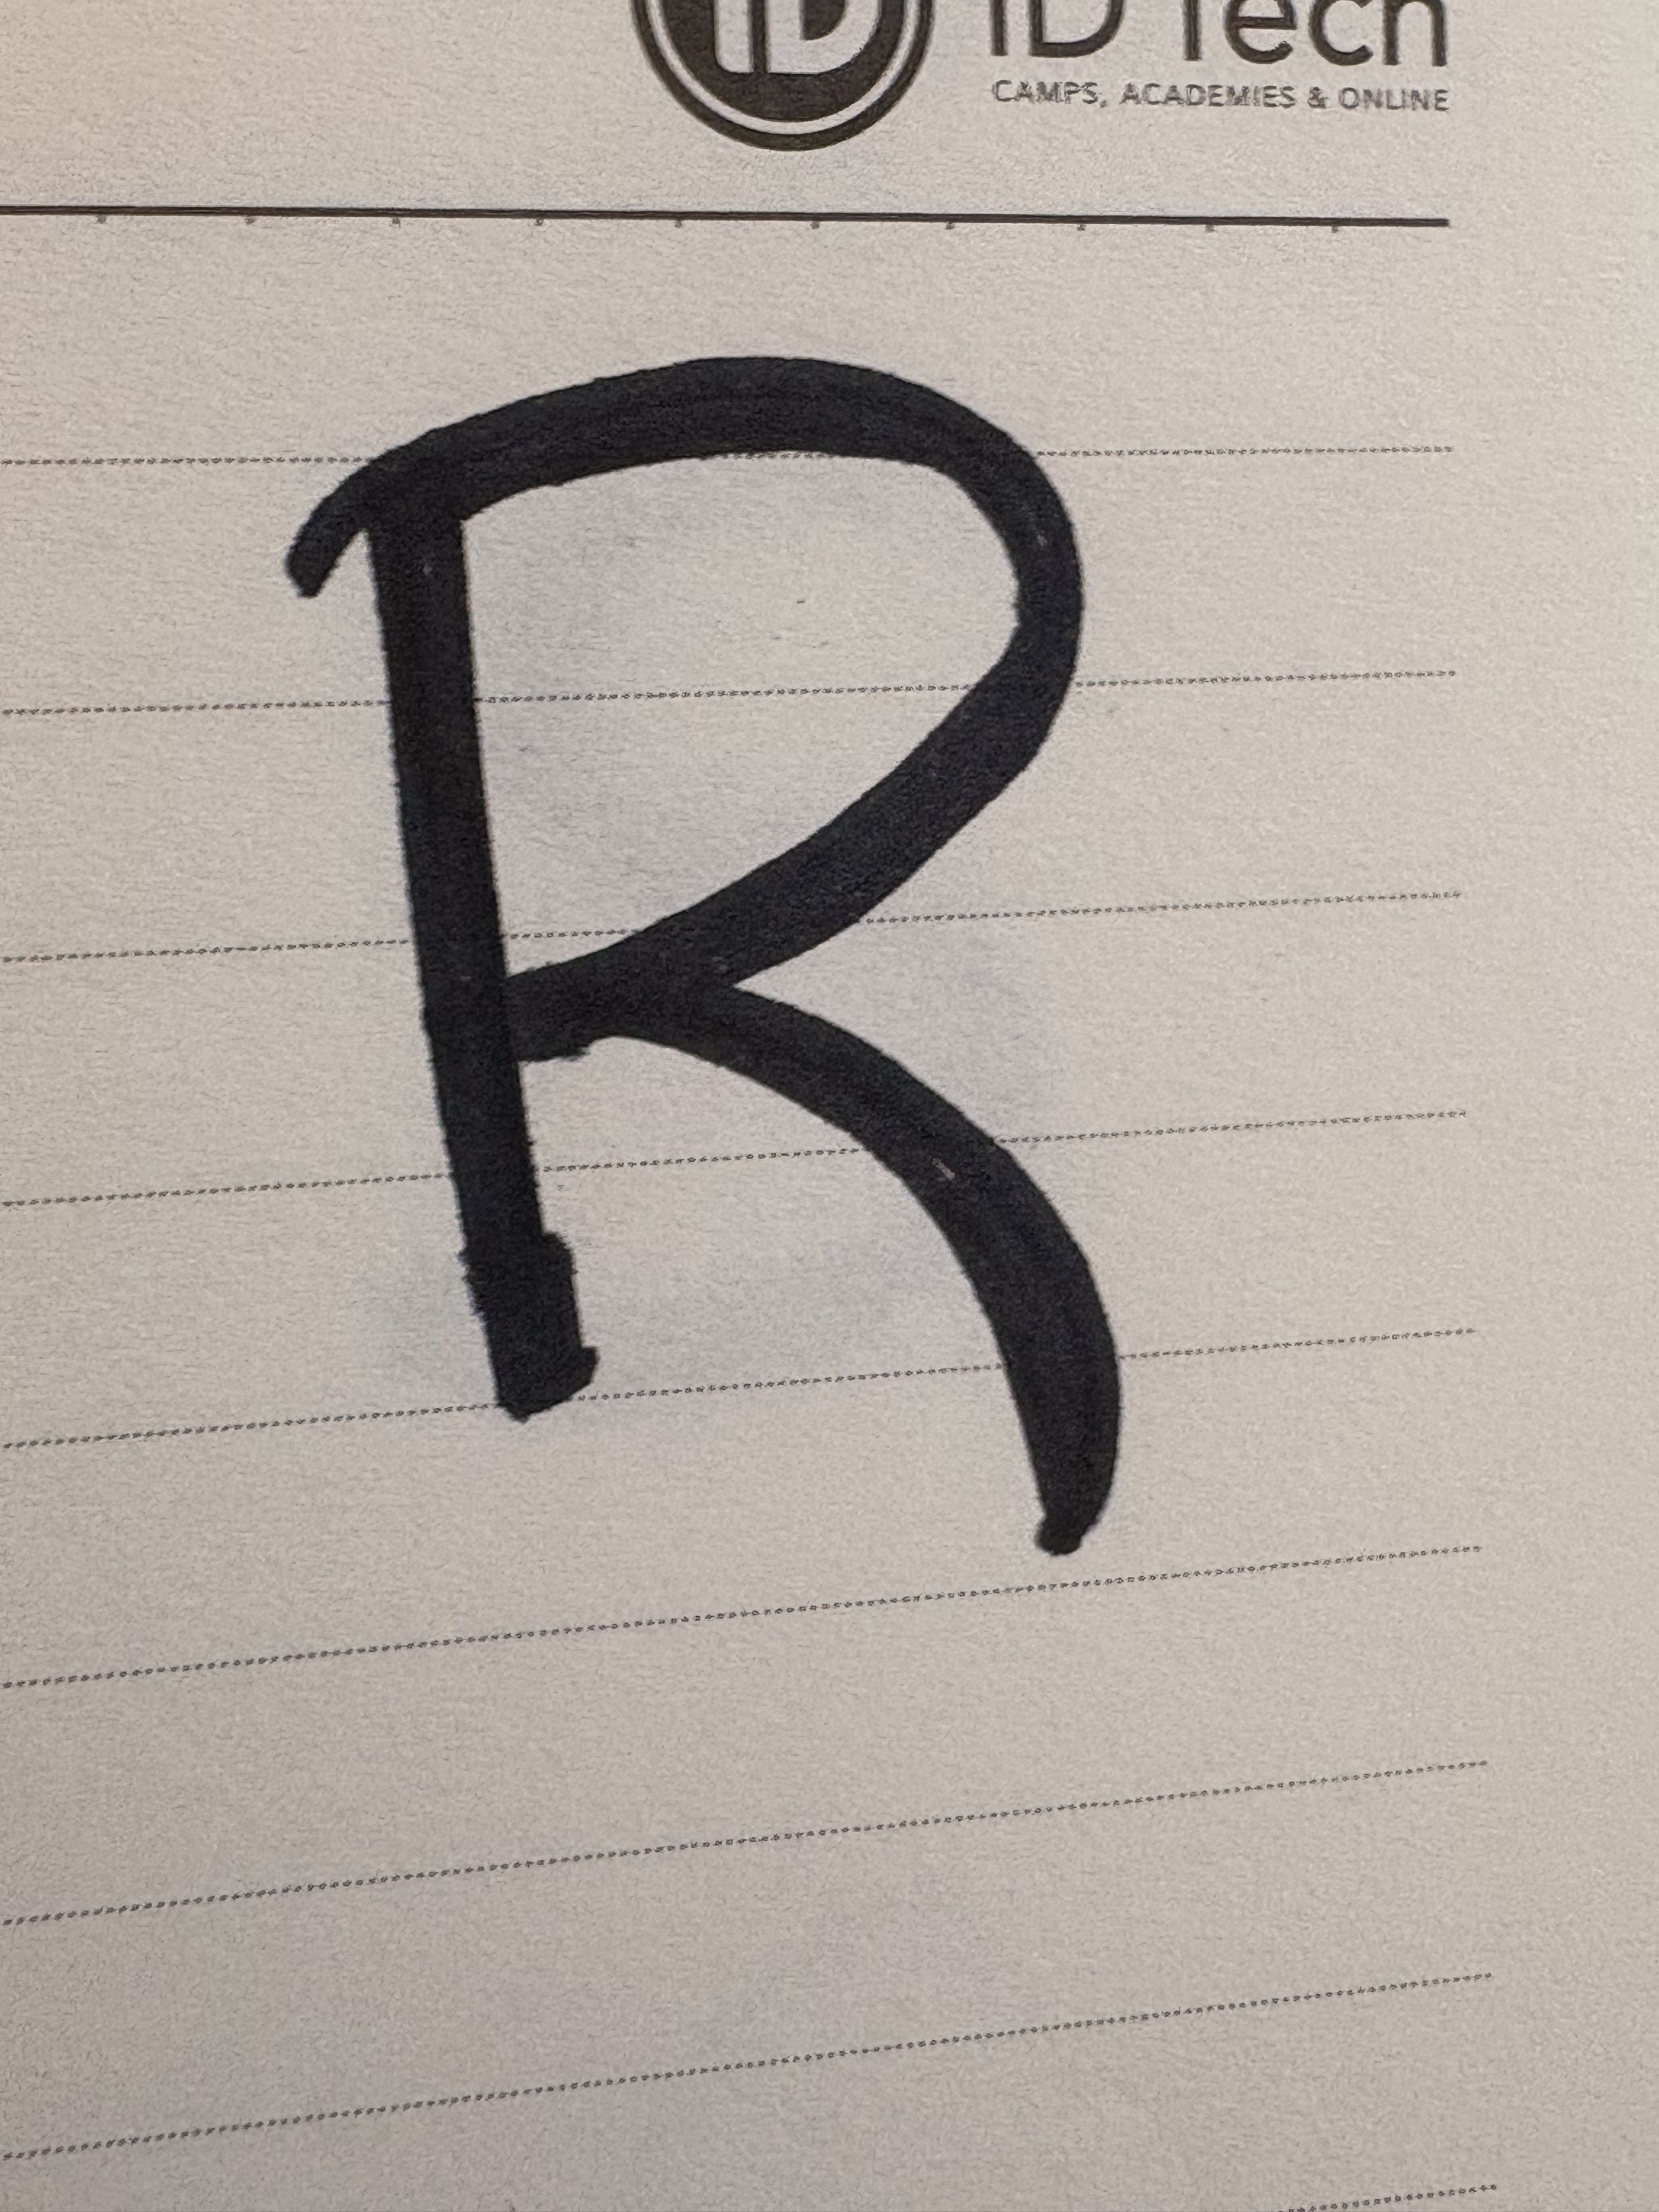 iD Tech
CAMPS, ACADEMIES & ONLINE
R